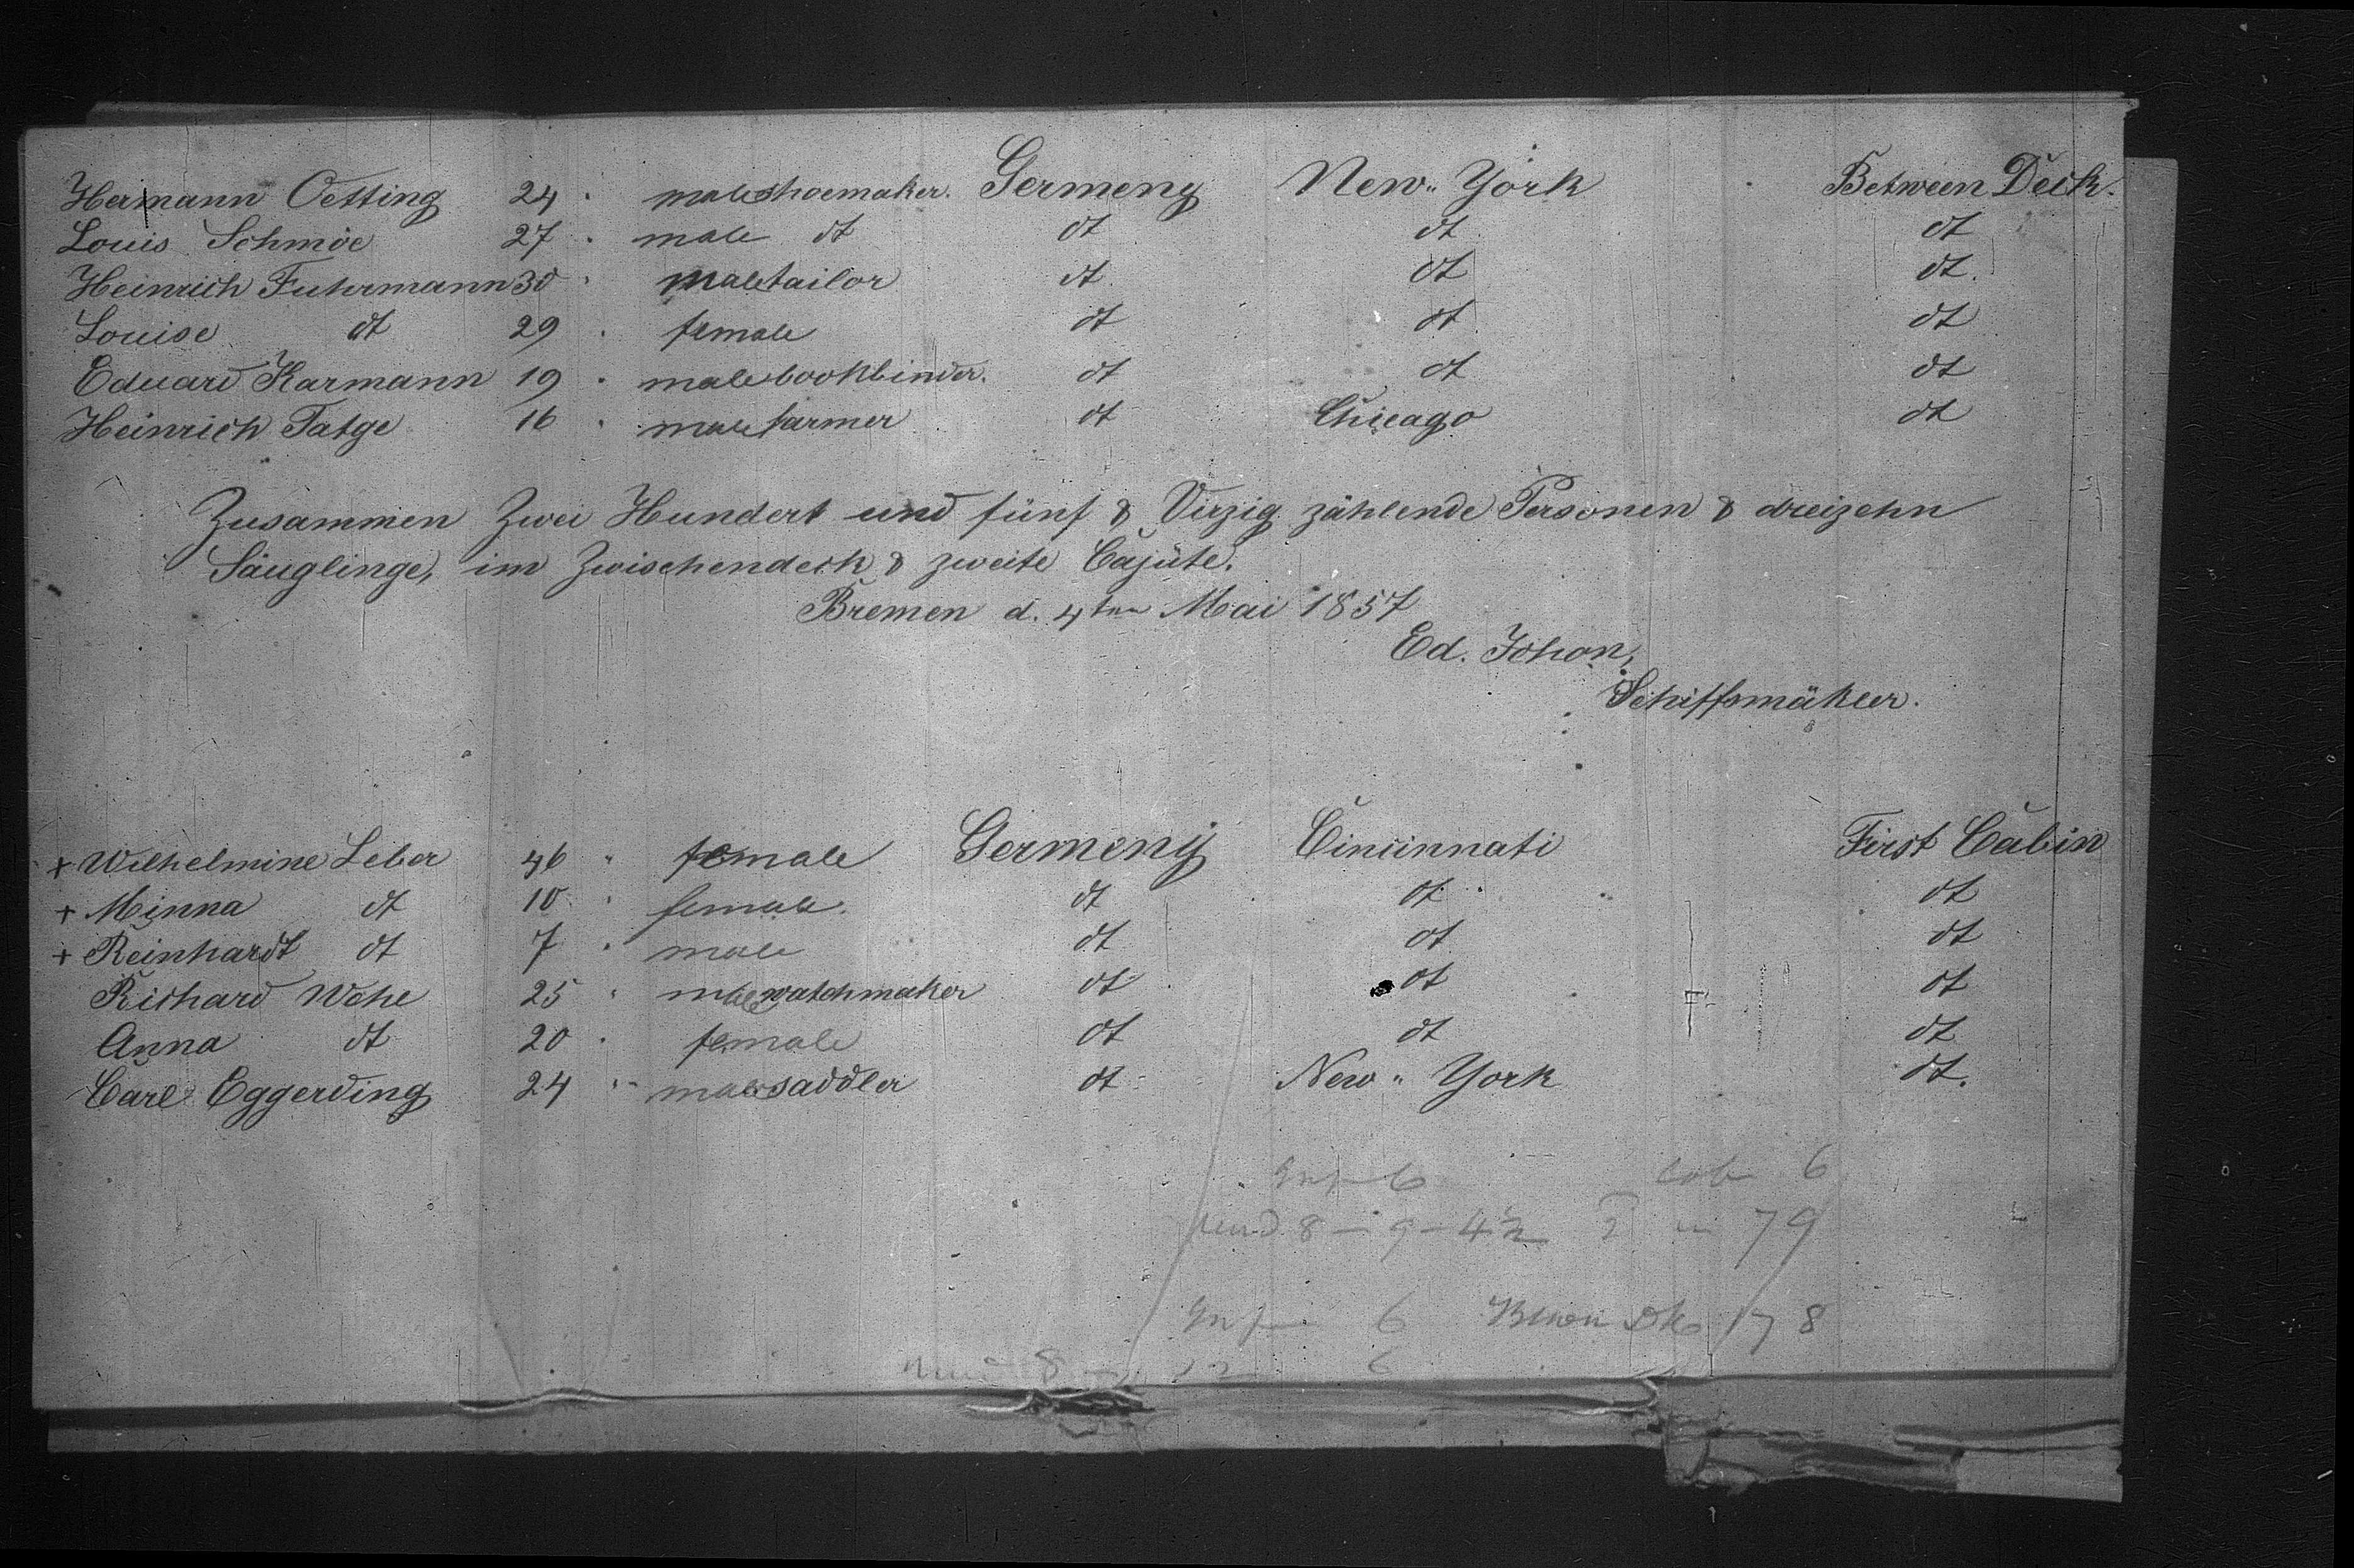 Hermann Oetting 24 " male shoemaker. Germeny New-York Between Deck.
Louis Schmöe 27 " male dt dt dt dt
Heinrich Fuhrmann 30 " male tailor dt dt dt.
Louise dt 29 " female dt dt dt
Eduard Karmann 19 " male bookbinder. dt dt dt
Heinrich Tatge 16 " male farmer dt Chicago dt
Zusammen Zwei Hundert und fünf & Virzig zählende Personen & dreizehn
Säuglinge, im Zwischendeck & zweite Cajüte.
Bremen d. 4ten Mai 1857
Ed. Ichon,
Schiffsmäkler.
+ Wilhelmine Leber 46 " female Germeny Cincinnati First Cabin
+ Minna dt 10 " female. dt dt dt
+ Reinhardt dt 7 " male dt dt dt
Richard Wehe 25 " male watchmaker dt dt dt
Anna dt 20 " female dt dt dt
Carl Eggerding 24 " male saddler dt New-York dt.
6 Cab 6
8 - 9 - 42 79
6 178
8 12 6